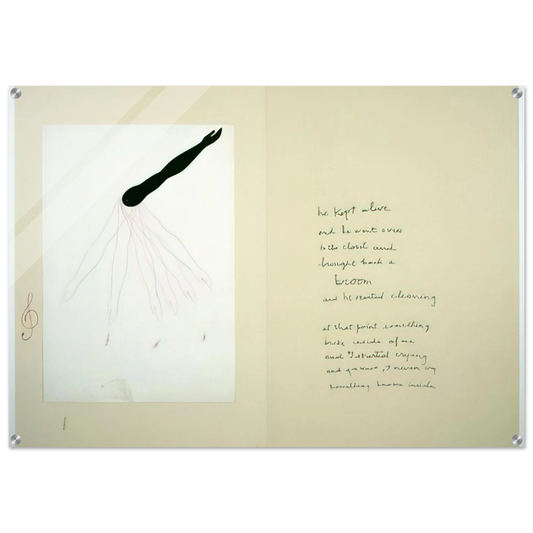 he kept alive
and he went over
to the closet and
brought back a
broom
and he started cleaning
at that point something
broke inside of me
and I started crying
and you know, I never cry
something broke inside